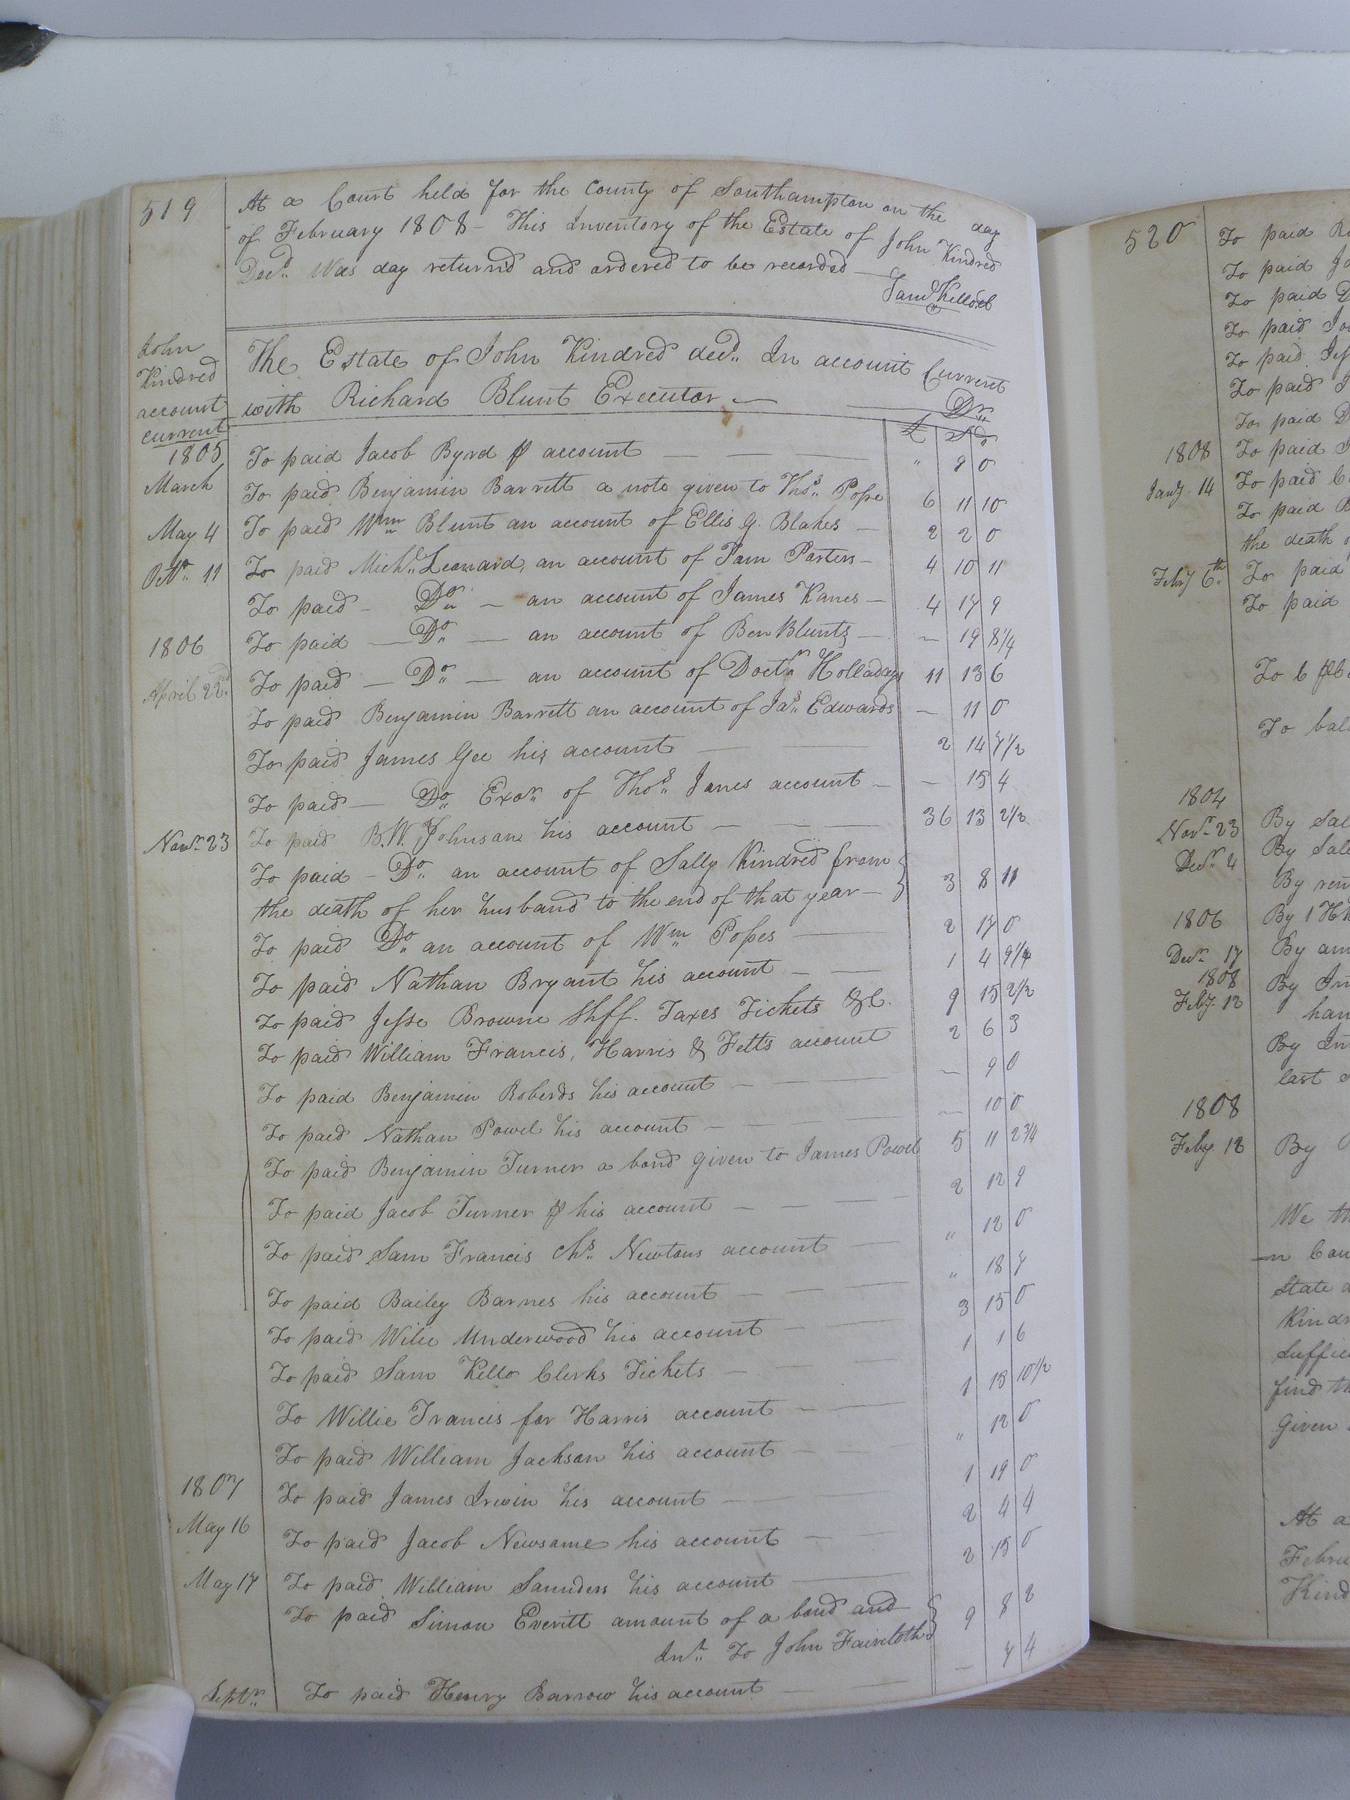 519
At a Court held for the County of Southampton on the day
of February 1808 - This Inventory of the Estate of John Kindred
Decd. Was day returnd and ordered to be recorded
Saml Kello
John
Kindred
account
current
The Estate of John Kindred decd. In account Current
with Richard Blunt Executor
Dr.
£ S d
1805
To paid Jacob Byrd p account " 9 0
March
To paid Benjamin Barrett a note given to Thos. Pope 6 11 10
May 4 To paid Wm Blunt an account of Ellis G. Blakes 2 2 0
Octr. 11 To paid Michl. Leonard, an account of Tam Porters 4 10 11
To paid - Do - an account of James Kanes 4 17 9
1806 To paid - Do - an account of Ben Blunts - 19 8 1/4
April 22d. To paid - Do - an account of Doctr Holladays 11 13 6
To paid Benjamin Barrett an account of Jas. Edwards - 11 0
To paid James Gee his account 2 14 7 1/2
To paid - Do Exor. of Thos. Janes account - 15 4
Novr. 23 To paid B.W. Johnson his account 36 13 2 1/2
To paid - Do. an account of Sally Kindred from
the death of her husband to the end of that year - 3 8 11
To paid Do. an account of Wm Popes 2 17 0
To paid Nathan Bryant his account 1 4 9 1/4
To paid Jesse Browne Shff. Taxes Tickets &C. 9 15 2 1/2
To paid William Francis, Harris & Fetts account 2 6 3
To paid Benjamin Roberds his account - 9 0
To paid Nathan Powel his account - 10 0
To paid Benjamin Turner a bond given to James Powel 5 11 2 3/4
To paid Jacob Turner p his account 2 12 9
To paid Sam Francis Chs. Newtons account " 12 0
To paid Bailey Barnes his account " 18 7
To paid Wilie Underwood his account 3 15 0
To paid Sam Kello Clerks Tickets 1 1 6
To Willie Francis for Harris account 1 13 10 1/2
To paid William Jackson his account " 12 0
1807 To paid James Irwin his account 1 19 0
May 16 To paid Jacob Newsome his account 2 4 4
May 17 To paid William Saunders his account 2 15 0
To paid Simon Everitt amount of a bond and
Int. To John Faircloth 9 8 2
Septr. To paid Henry Barrow his account - 7 4
520
To paid
To paid
To paid
To paid
To paid
To paid
To paid
1808 To paid
Jany. 14 To paid
To paid
the death
Feby 6th. To paid
To paid
To 6
To bal
1804
Novr. 23 By Sal
Decr. 4 By Sale
By ren
1806 By 1
Decr. 17 By am
1808 By In
Feby. 12 han
By In
last
1808
Feby 12 By
We th
State
Kindr
Suffici
find th
given
At a
Febru
Kind